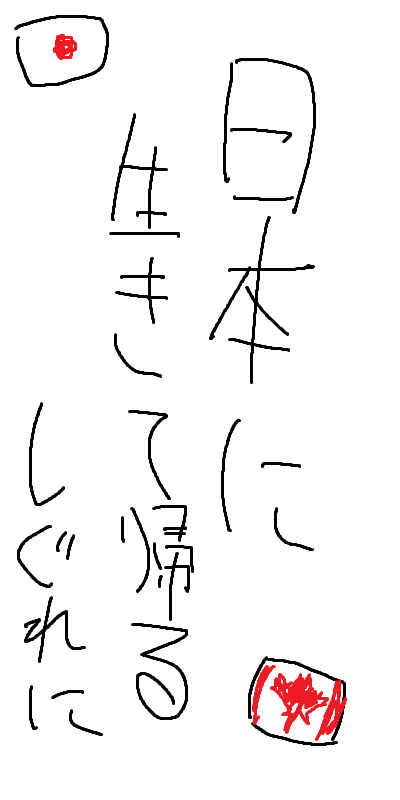 日本に
生きて帰る
しぐれに